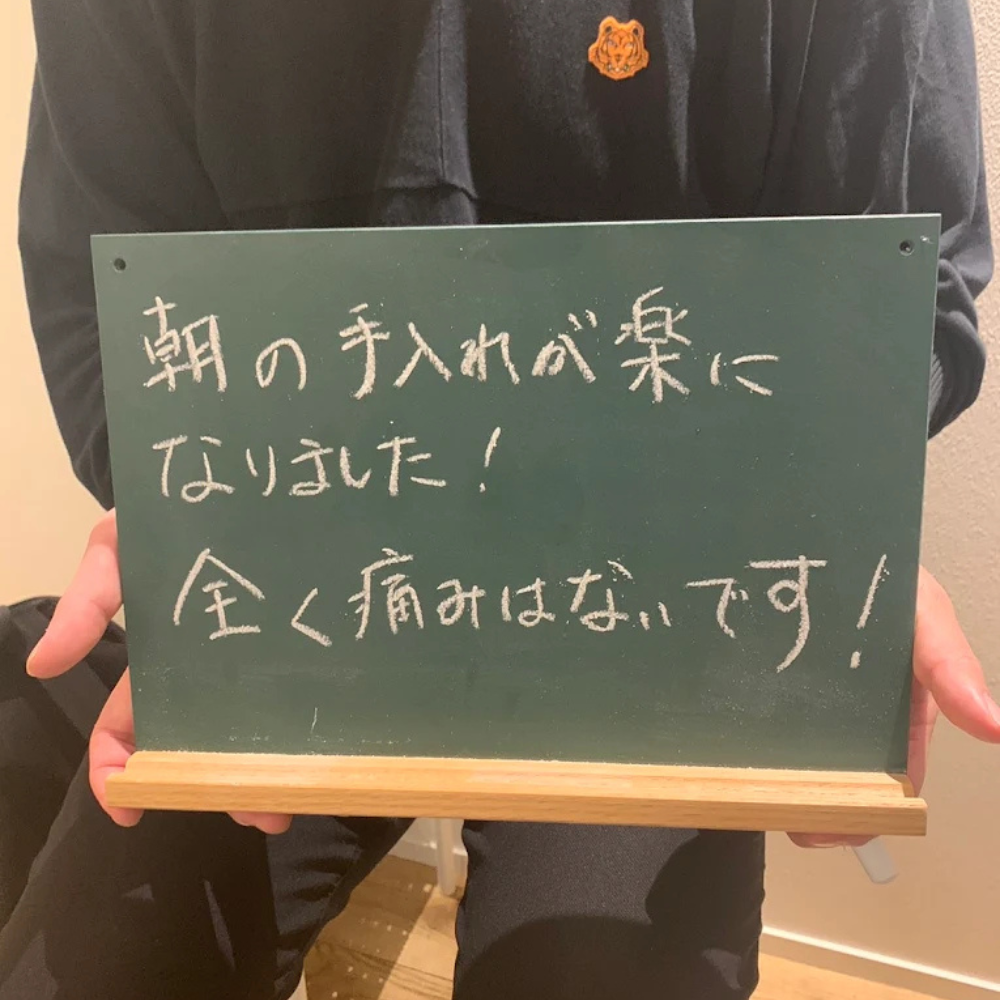 朝の手入れが楽に
なりました!
全く痛みはないです!